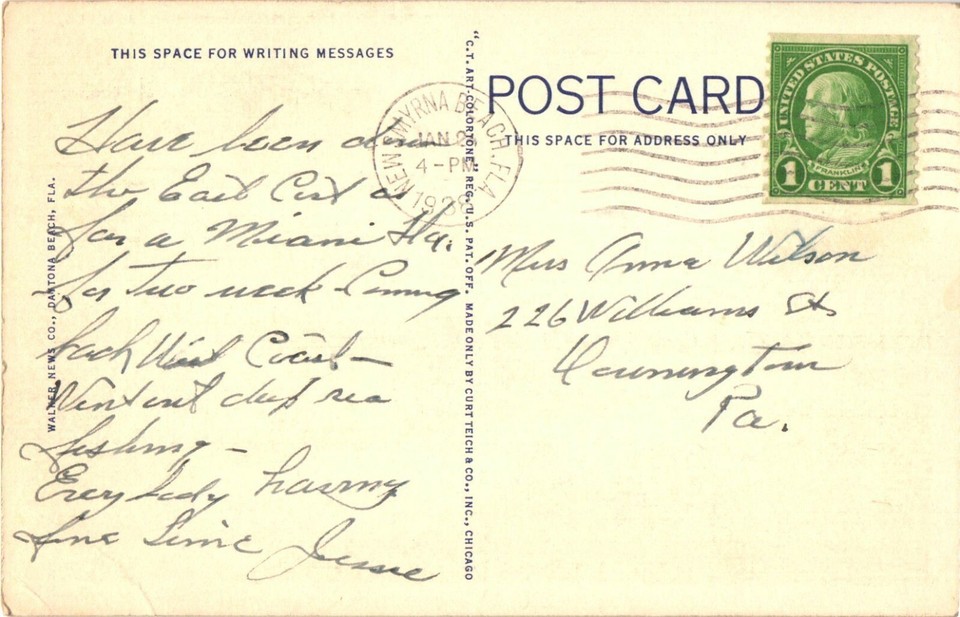 THIS SPACE FOR WRITING MESSAGES
Have been down
the East Cost
for a Miami Fla.
for two week Coming
back West Coast —
Went out deep sea
fishing —
Every body having
fine time Jessie
WALKER NEWS CO., DAYTONA BEACH, FLA.
"C.T. ART-COLORTONE" REG. U.S. PAT. OFF. MADE ONLY BY CURT TEICH & CO., INC., CHICAGO
NEW SMYRNA BEACH, FLA
JAN
4-PM
POST CARD
THIS SPACE FOR ADDRESS ONLY
UNITED STATES POSTAGE
FRANKLIN
1 CENT 1
Miss Anna Wilson
226 Williams St
Downingtown
Pa.